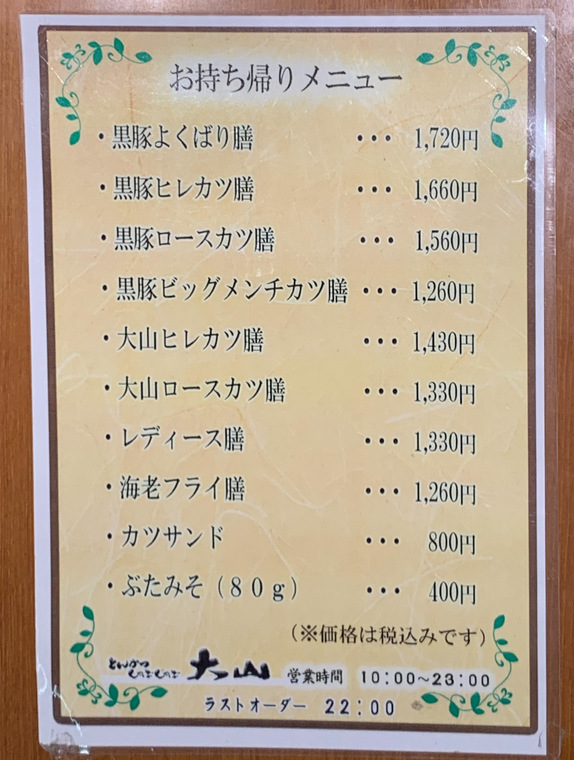 お持ち帰りメニュー
・黒豚よくばり膳 ・・・ 1,720円
・黒豚ヒレカツ膳 ・・・ 1,660円
・黒豚ロースカツ膳 ・・・ 1,560円
・黒豚ビッグメンチカツ膳 ・・・ 1,260円
・大山ヒレカツ膳 ・・・ 1,430円
・大山ロースカツ膳 ・・・ 1,330円
・レディース膳 ・・・ 1,330円
・海老フライ膳 ・・・ 1,260円
・カツサンド ・・・ 800円
・ぶたみそ（８０ｇ） ・・・ 400円
（※価格は税込みです）
とんかつ
大山 営業時間 10:00～23:00
ラストオーダー 22:00